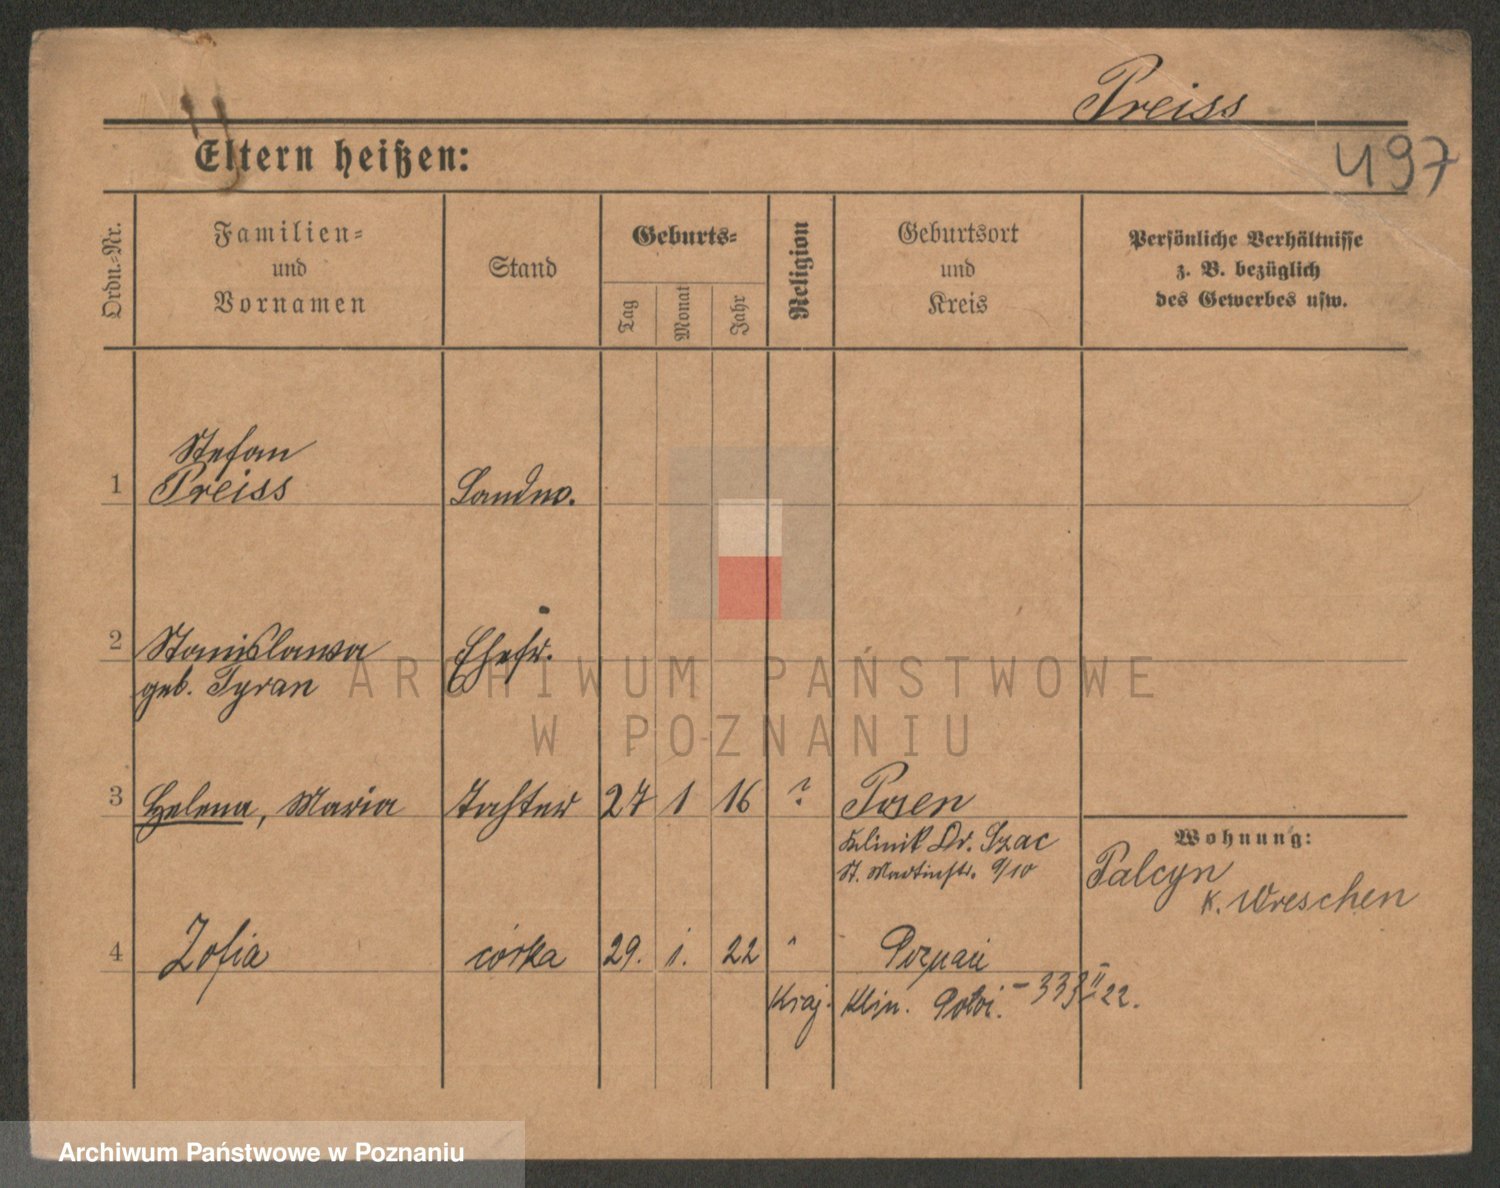 Preiss
497
Eltern heißen:
Ordn.-Nr.
Familien-
und
Vornamen
Stand
Geburts-
Tag
Monat
Jahr
Religion
Geburtsort
und
Kreis
Persönliche Verhältnisse
z. B. bezüglich
des Gewerbes usw.
Stefan
1 Preiss Landw.
2 Stanislawa Ehefr.
geb. Tyran
3 Helena, Maria Tochter 27 1 16 ? Posen
Klinik Dr. Szac
St. Martinstr. 9/10
Wohnung:
Palcyn
K. Wreschen
4 Zofia córka 29. 1. 22 " Poznań
Kraj. Klin. Położ. - 333 II 22.
ARCHIWUM PAŃSTWOWE
W POZNANIU
Archiwum Państwowe w Poznaniu